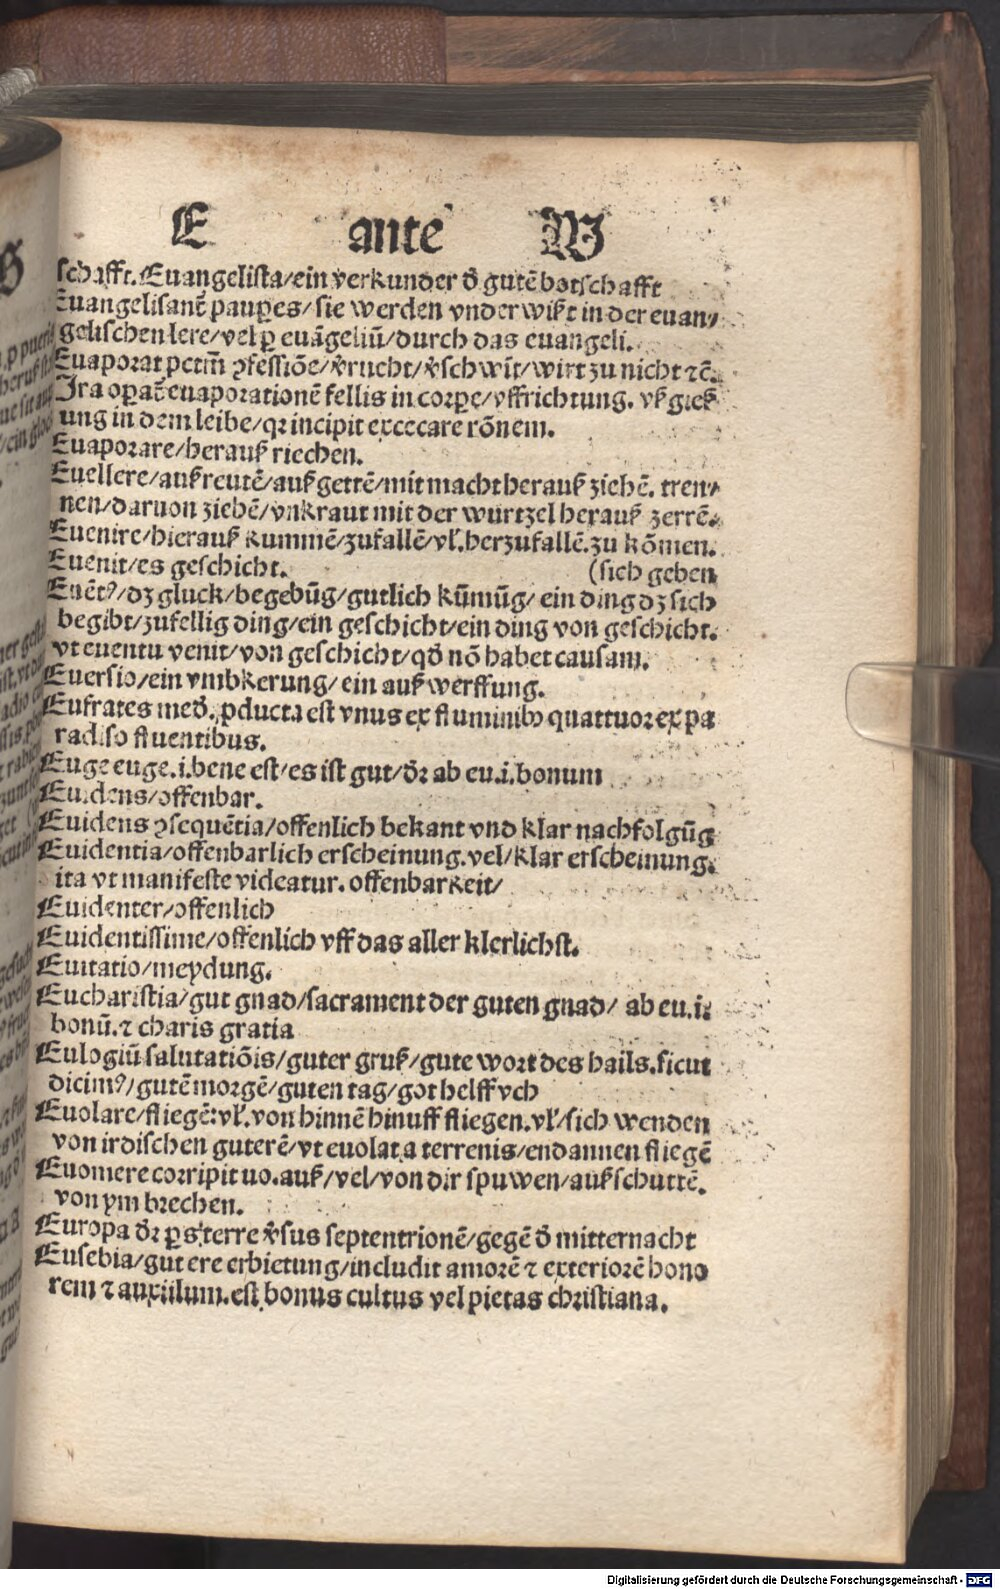 E ante W
schafft. Euangelista/ein v̄erkunder d̄ gutē botschafft
Euangelisant̄ paup̲es/sie werden vnderwißt in der euan/
gelischen lere/vel p̲ euāgeliū/durch das euangeli.
Euaporat pctm̄ ꝯfessiōe/v̄rucht/v̄schwīt/wirt zu nicht ⁊c̄.
Ira op̲at̄ euaporationē fellis in corp̲e/vffrichtung. vßgieß
ung in dem leibe/qꝛ incipit excecare rōnem.
Euaporare/herauß riechen.
Euellere/außreutē/außgettē/mit macht herauß ziehē. tren/
nen/daruon ziehē/vnkraut mit der wurtzel herauß zerrē.
Euenire/hierauß kummē/zufallē/vl̕. herzufallē. zu kōmen.
Euenit/es geschicht. (sich geben
Euēt⁹/dz gluck/begebūg/gutlich kūmūg/ ein ding dz sich
begibt/zufellig ding/ein geschicht/ein ding von geschicht.
vt euentu venit/von geschicht/qd̄ nō habet causam.
Euersio/ein vmbkerung/ein auß werffung.
Eufrates med̄. ꝓducta est vnus ex fluminibꝰ quattuor ex pa
radiso fluentibus.
Euge euge .i. bene est/es ist gut/dr̄ ab eu .i. bonum
Euidens/offenbar.
Euidens ꝯsequētia/offenlich bekant vnd klar nachfolgūg
Euidentia/offenbarlich erscheinung. vel/klar erscheinung.
ita vt manifeste videatur. offenbarkeit/
Euidenter/offenlich
Euidentissime/offenlich vff das aller klerlichst.
Euitatio/meydung.
Eucharistia/gut gnad/sacrament der guten gnad/ ab eu .i.
bonū. ⁊ charis gratia
Eulogiū salutatiōis/guter gruß/gute wort des hails. sicut
dicim⁹/gutē morgē/guten tag/got helff vch
Euolare/fliegē: vl̕. von hinnē hinuff fliegen. vl̕/sich wenden
von irdischen guterē/vt euolat a terrenis/endannen fliegē
Euomere corripit uo. auß/vel/von dir spuwen/außschuttē.
von ym brechen.
Europa dr̄ p̲s terre v̄sus septentrionē/gegē d̄ mitternacht
Eusebia/gut ere erbietung/includit amorē ⁊ exteriorē hono
rem ⁊ auxiilum. est bonus cultus vel pietas christiana.
Digitalisierung gefördert durch die Deutsche Forschungsgemeinschaft - DFG